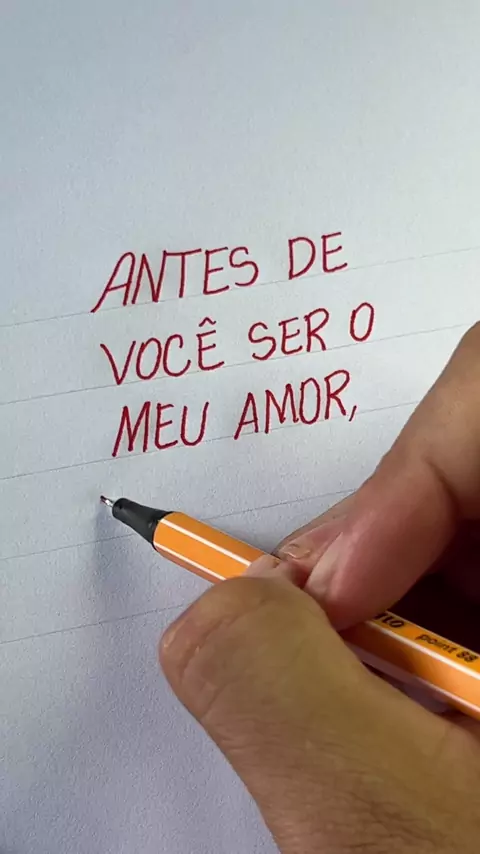 ANTES DE
VOCÊ SER O
MEU AMOR,
point 88